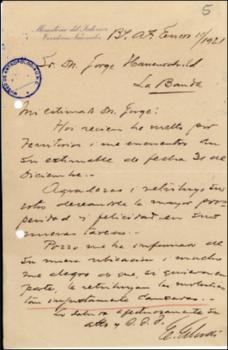 5
Ministerio del Interior
Territorios Nacionales
Bs. As. Enero 1/1921
Sr. Dn. Jorge
La Banda
Mi estimado Dn. Jorge:
Hoy recien he vuelto por
Territorios i me encuentro con
su estimable de fecha 30 de
Diciembre.
Agradezco i retribuyo sus
votos deseandole la mayor pros-
peridad i felicidad en sus
nuevas tareas.
Pozzo me ha informado de
su nueva ubicacion i mucho
me alegro de que, si quiera en
parte, le retribuyan las molestias
tan injustamente causadas.
Lo saluda
atto y S.S.S.